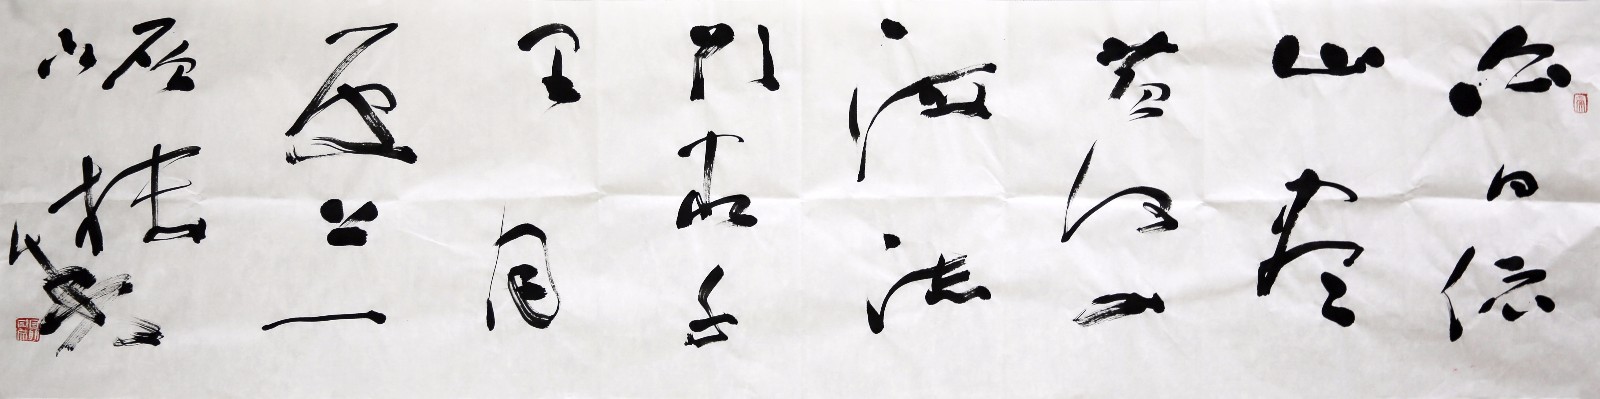 白日依
山尽
黄河入
海流
欲穷千
里目
更上一
层楼